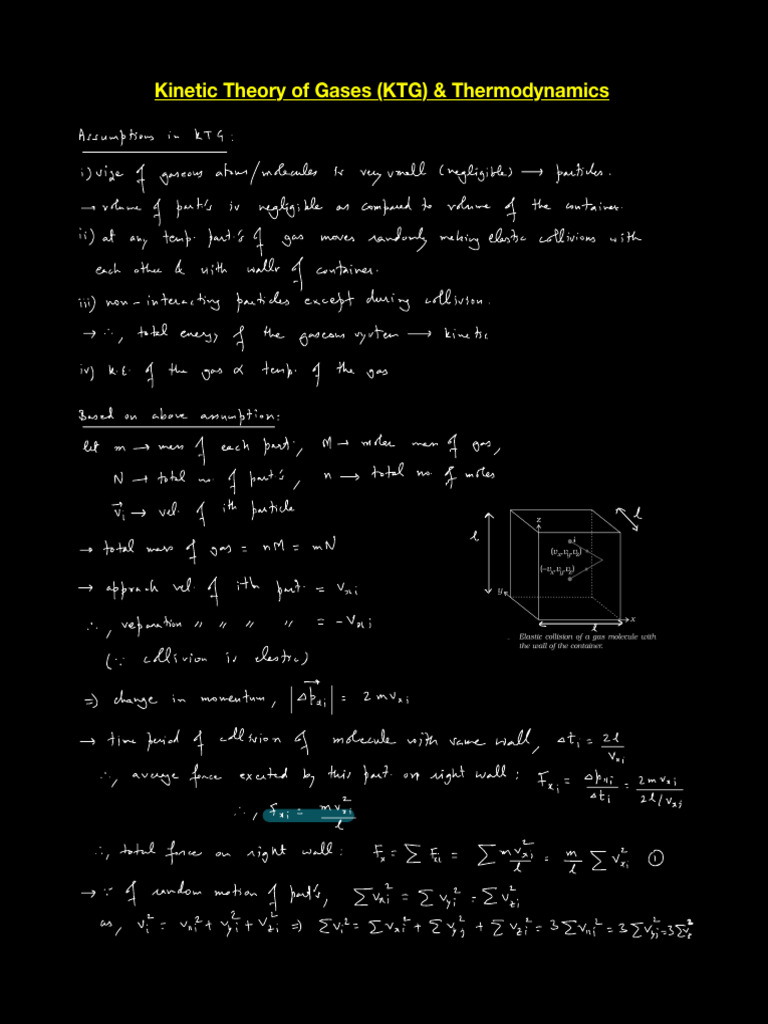 Kinetic Theory of Gases (KTG) & Thermodynamics
Assumptions in KTG:
i) size of gaseous atoms/molecules is very small (negligible) → particles.
→ volume of part's is negligible as compared to volume of the container.
ii) at any temp. part's of gas moves randomly making elastic collisions with
each other & with walls of container.
iii) non-interacting particles except during collision.
→ ∴, total energy of the gaseous system → kinetic
iv) K.E. of the gas ∝ temp. of the gas
Based on above assumption:
let m → mass of each part., M → molar mass of gas,
N → total no. of part's, n → total no. of moles
v⃗ᵢ → vel. of ith particle
→ total mass of gas = nM = mN
→ approach vel. of ith part. = vₓᵢ
∴, separation " " " " = -vₓᵢ
(∵ collision is elastic)
l
l
z
i
(vₓ,vᵧ,v_z)
(-vₓ,vᵧ,v_z)
y
x
l
Elastic collision of a gas molecule with
the wall of the container.
⇒ change in momentum, |Δp⃗ₓᵢ| = 2mvₓᵢ
→ time period of collision of molecule with same wall, Δtᵢ = 2l/vₓᵢ
∴, average force exerted by this part. on right wall: Fₓᵢ = Δpₓᵢ/Δtᵢ = 2mvₓᵢ/(2l/vₓᵢ)
∴, Fₓᵢ = mvₓᵢ²/l
∴, total force on right wall: Fₓ = ∑Fₓᵢ = ∑mvₓᵢ²/l = m/l ∑vₓᵢ² ①
→ ∵ of random motion of part's, ∑vₓᵢ² = ∑vᵧᵢ² = ∑v_zᵢ²
as, vᵢ² = vₓᵢ² + vᵧᵢ² + v_zᵢ² ⇒ ∑vᵢ² = ∑vₓᵢ² + ∑vᵧᵢ² + ∑v_zᵢ² = 3∑vₓᵢ² = 3∑vᵧᵢ² = 3∑v_z²